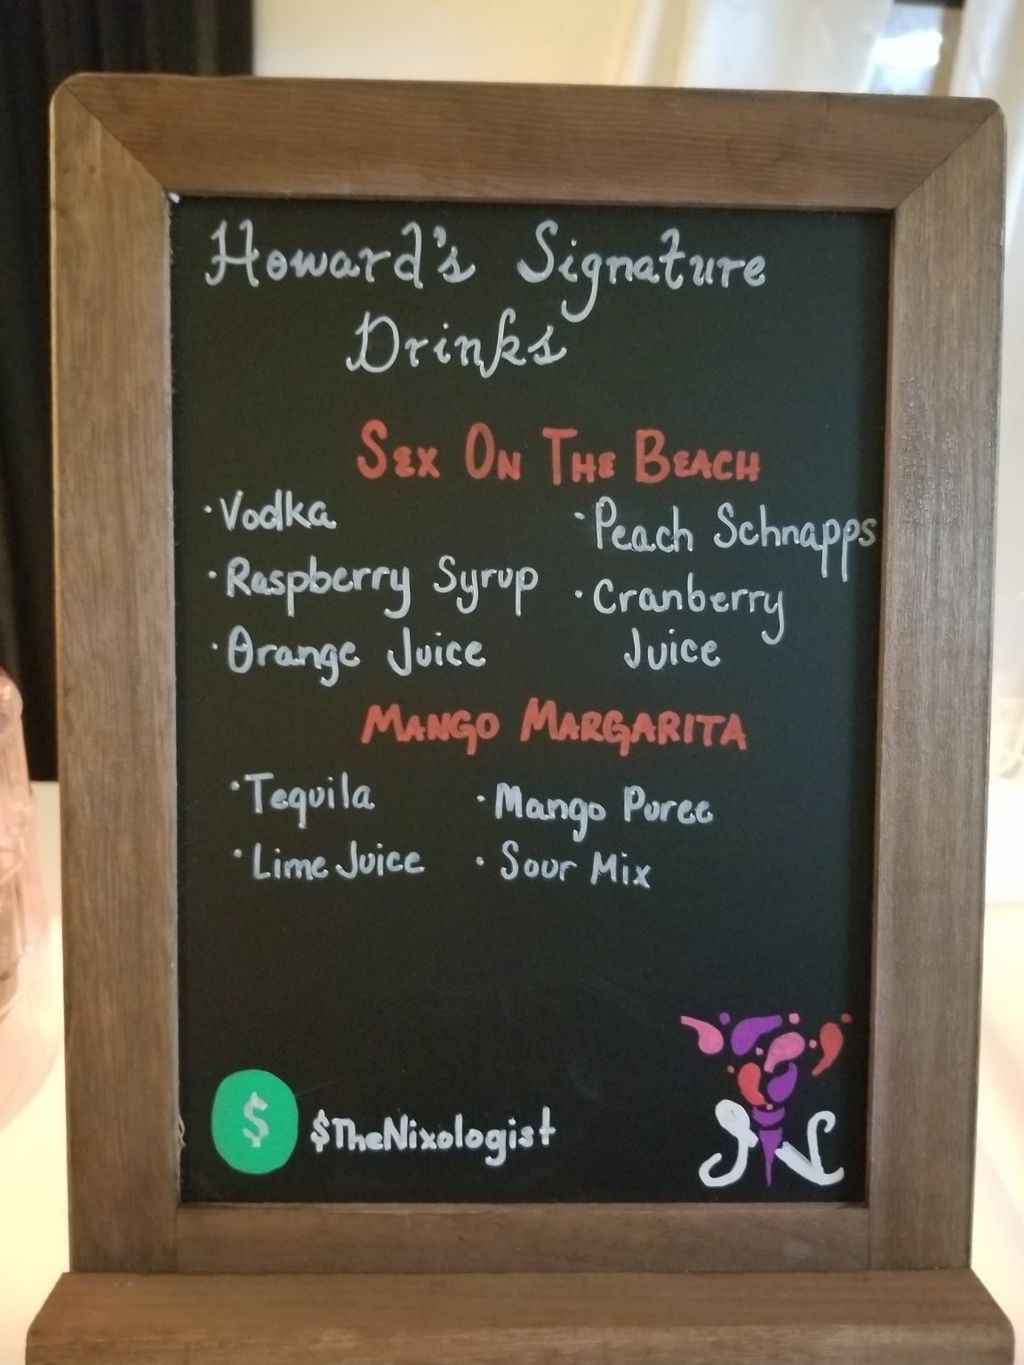 Howard's Signature
Drinks
SEX ON THE BEACH
·Vodka
·Raspberry Syrup
·Orange Juice
·Peach Schnapps
·Cranberry
Juice
MANGO MARGARITA
·Tequila
·Lime Juice
·Mango Puree
·Sour Mix
$
$TheNixologist